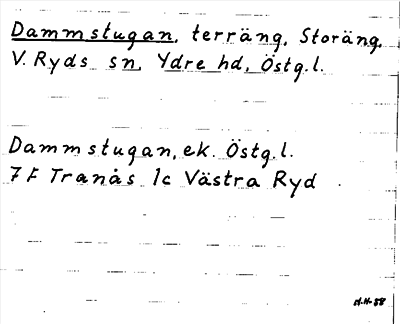 Dammstugan, terräng, Storäng,
V. Ryds sn, Ydre hd, Östg.l.
Dammstugan, ek. Östg.l.
7F Tranås 1c Västra Ryd
H.H-88